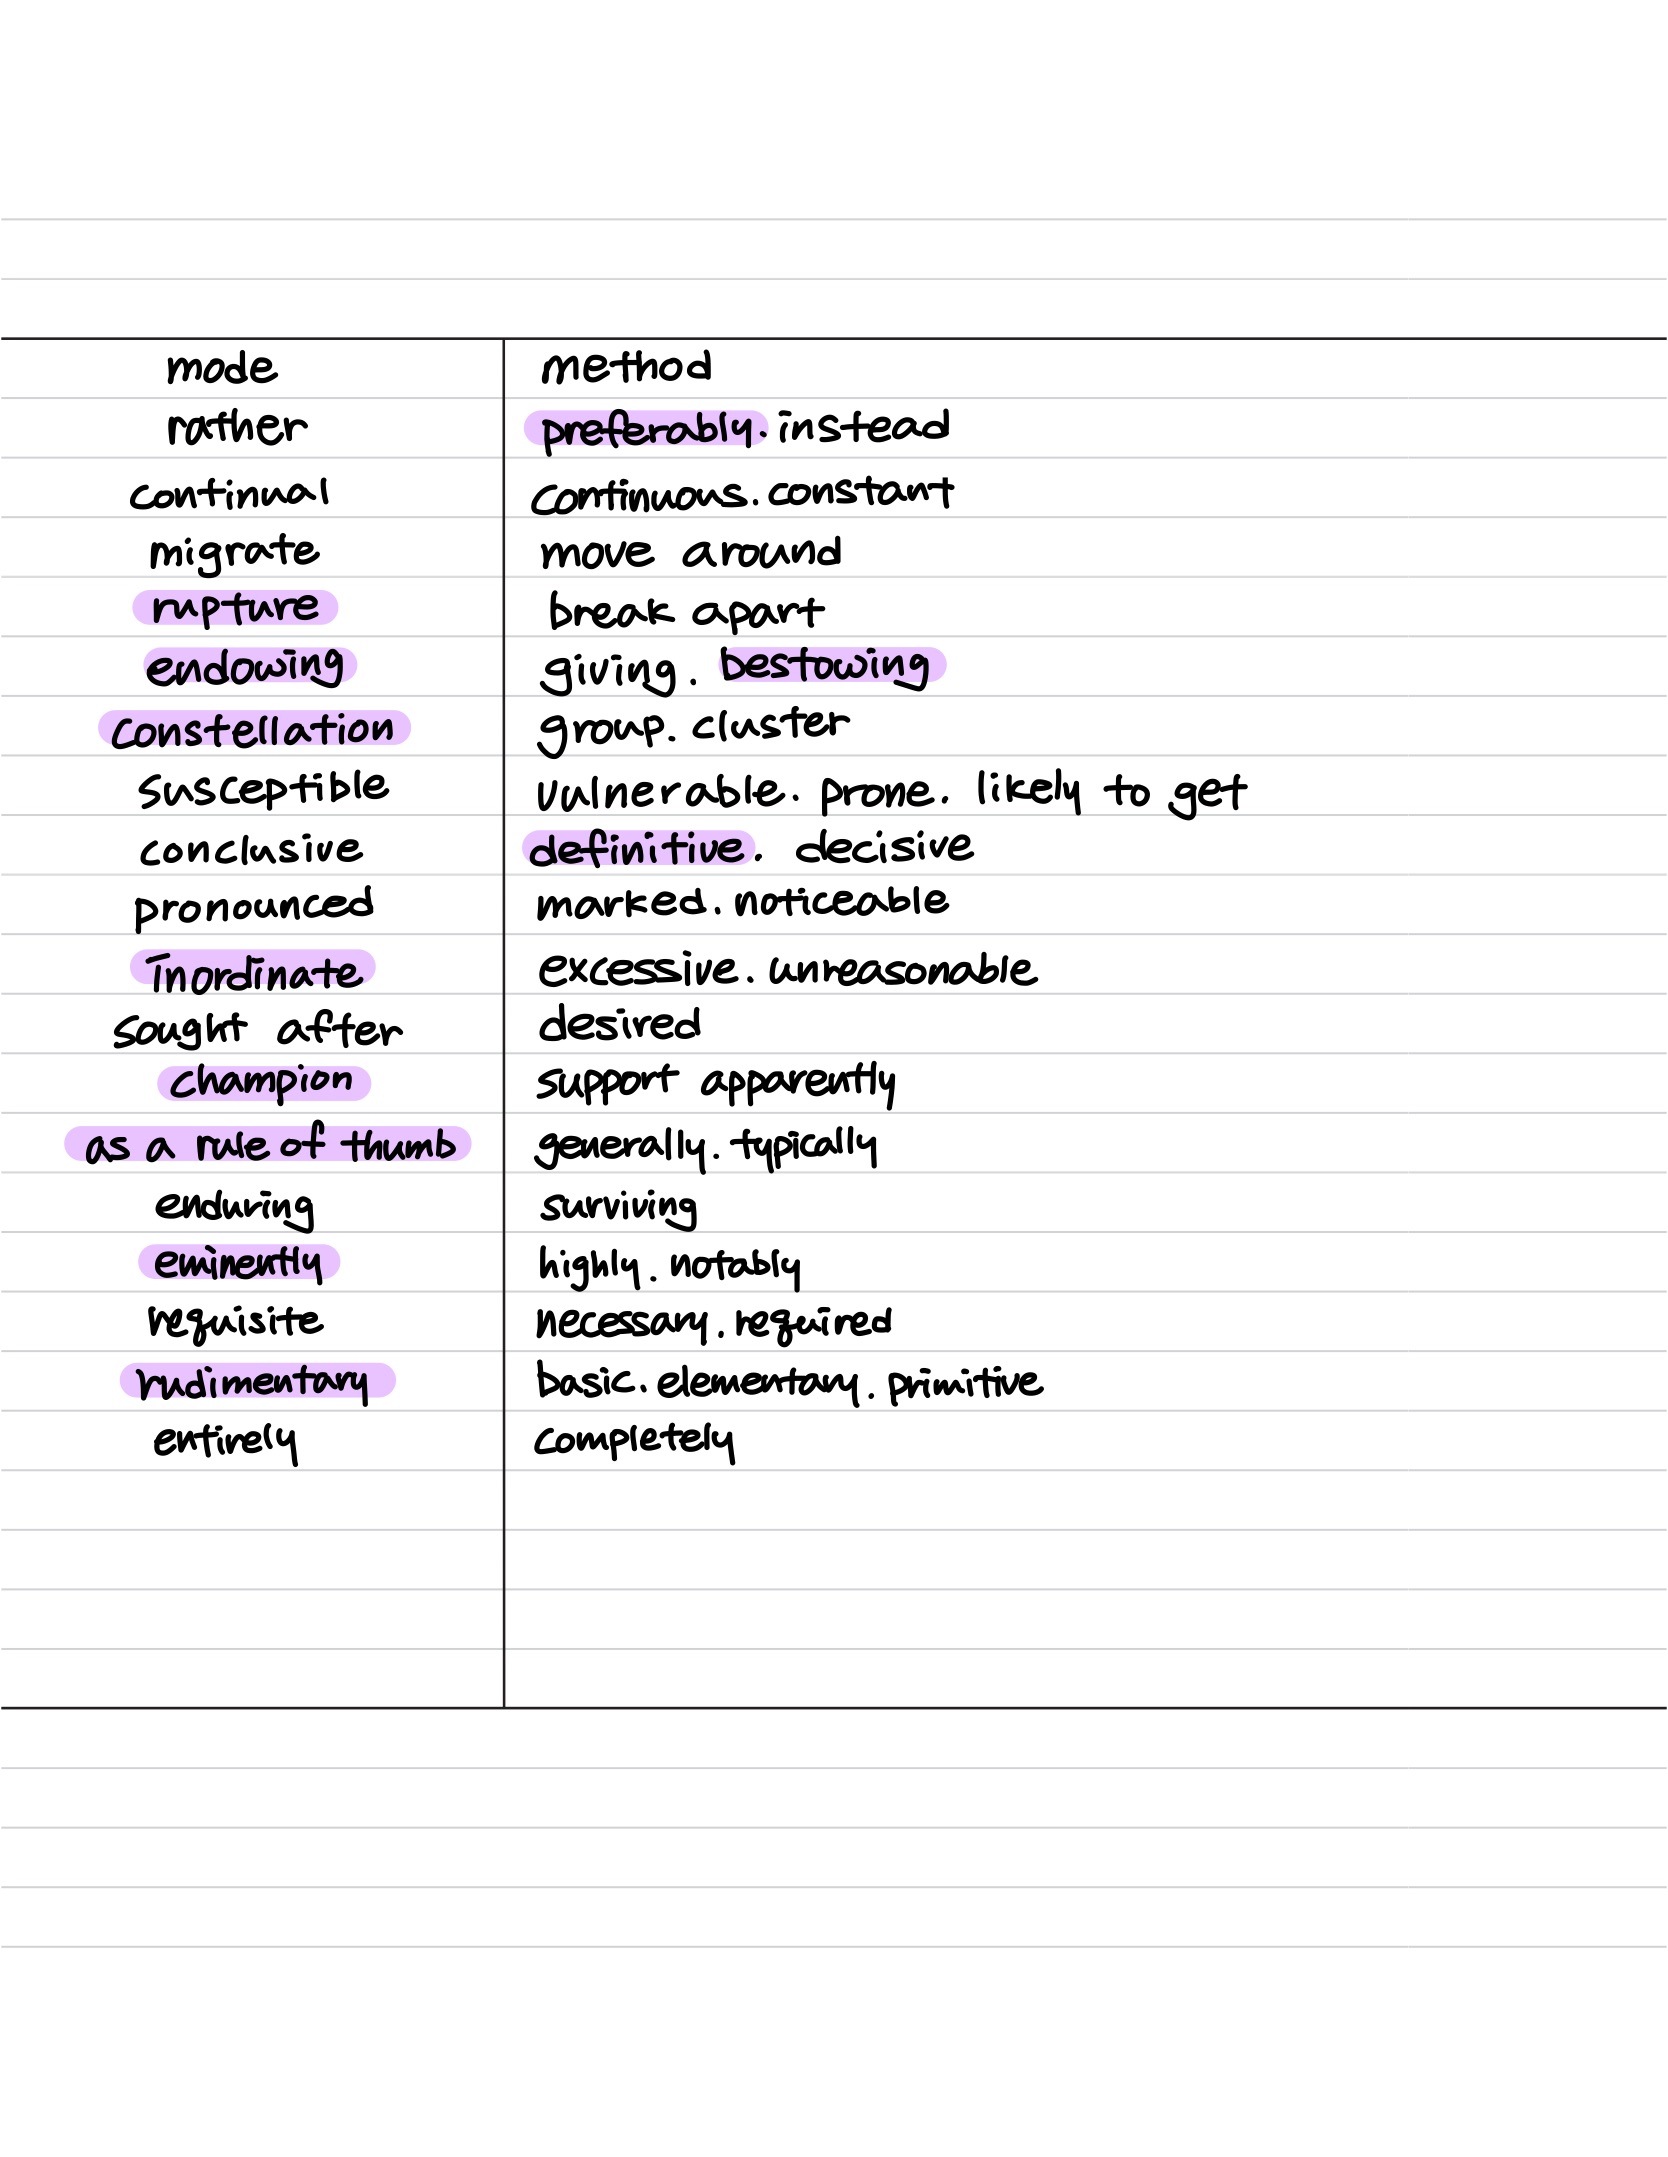 mode method
rather preferably. instead
continual continuous. constant
migrate move around
rupture break apart
endowing giving. bestowing
constellation group. cluster
susceptible vulnerable. prone. likely to get
conclusive definitive. decisive
pronounced marked. noticeable
inordinate excessive. unreasonable
sought after desired
champion support apparently
as a rule of thumb generally. typically
enduring surviving
eminently highly. notably
requisite necessary. required
rudimentary basic. elementary. primitive
entirely completely